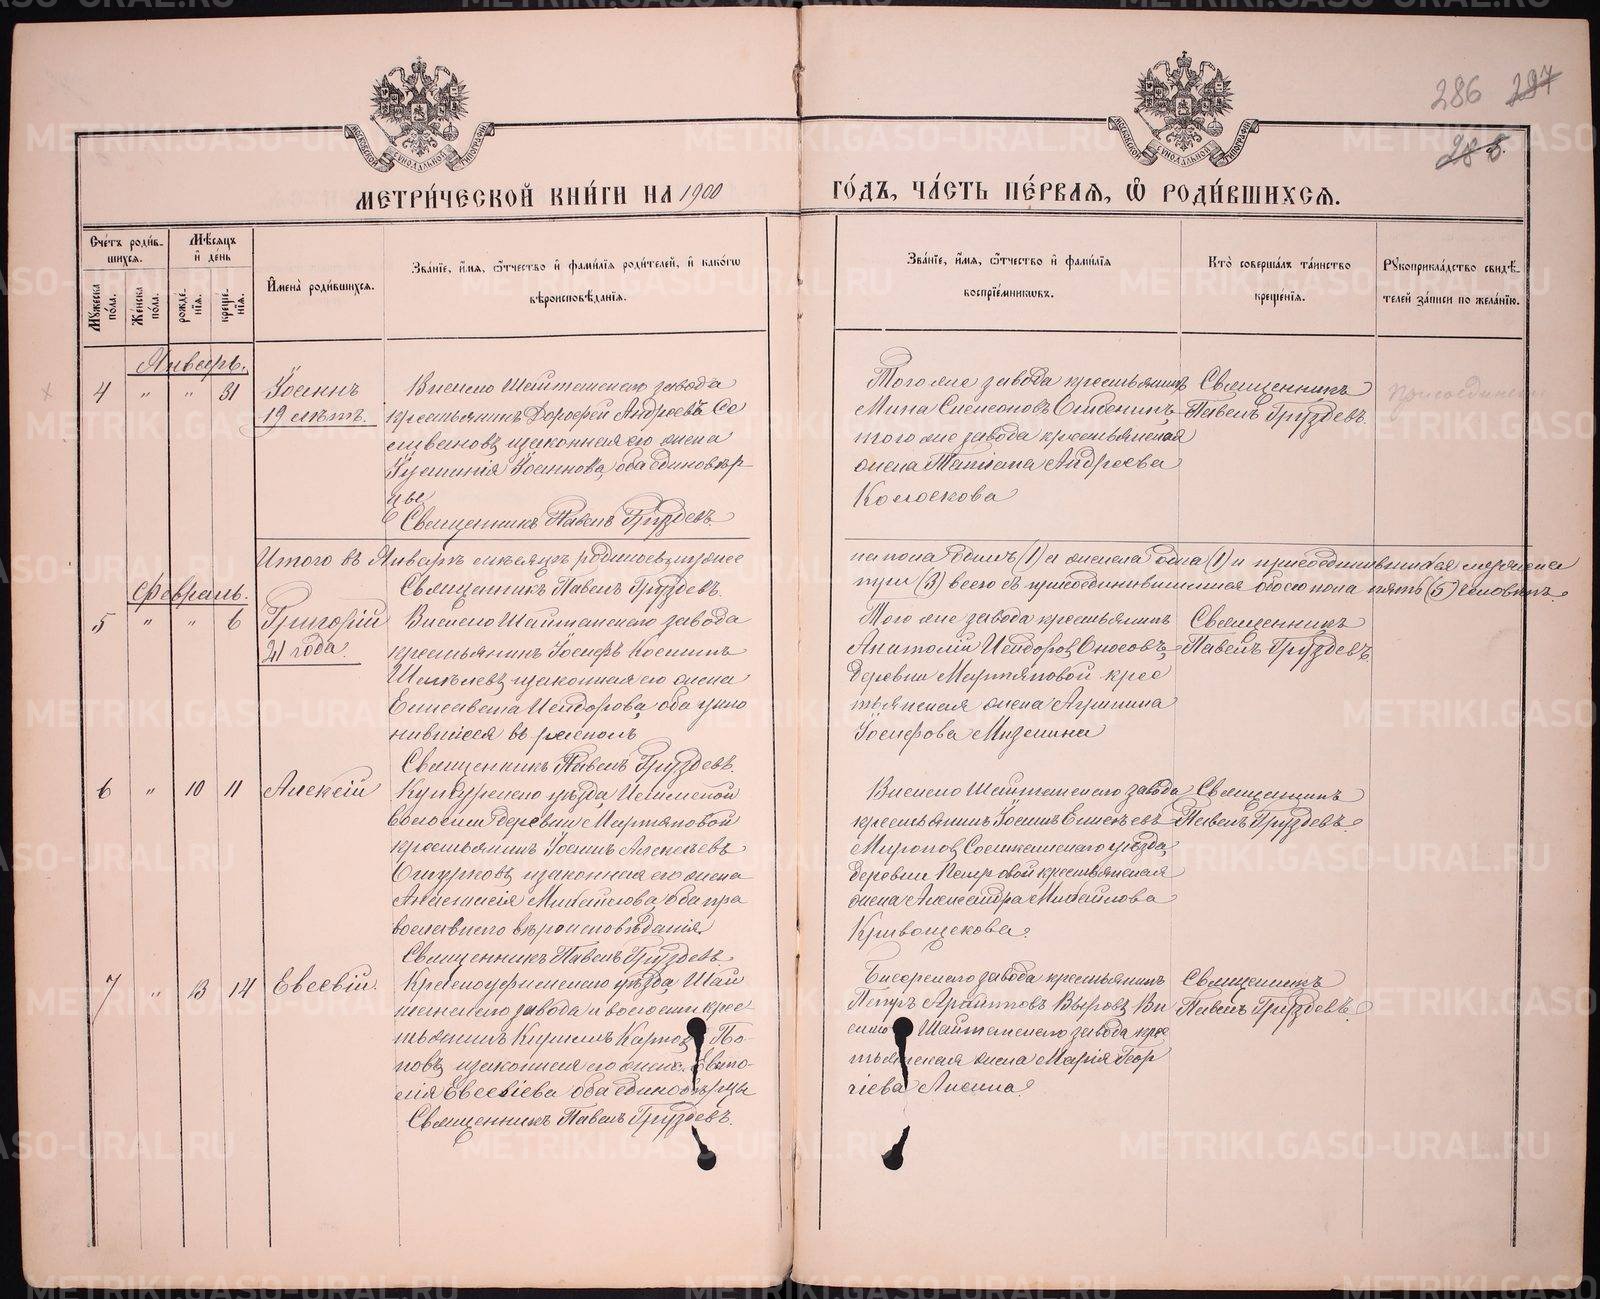 286 287
288
МЕТРИ́ЧЕСКОЙ КНИ́ГИ НА 1900 ГО́ДЪ, ЧА́СТЬ ПЕ́РВАЯ, Ѿ РОДИ́ВШИХСЯ.
Сче́тъ роди́вшихся.
Мѣ́сяцъ и҆ де́нь
Мꙋ́жеска по́ла.
Же́нска по́ла.
рожде́нїя.
креще́нїя.
И҆мена̀ роди́вшихся.
Зва́нїе, и҆́мя, ѻ҆́тчество и҆ фами́лїя роди́телей, и҆ како́гѡ
вѣроисповѣ́данїя.
Зва́нїе, и҆́мя, ѻ҆́тчество и҆ фами́лїя
воспрїе́мникѡвъ.
Кто̀ соверша́лъ та́инство
креще́нїя.
Рꙋкоприкла́дство свидѣ́телей за́писи по жела́нїю.
Январь.
4 " " 31
Іоаннъ
19 лѣтъ.
Висимо Шайтанскаго завода
крестьянинъ Дорофей Андреевъ Се
ливановъ, и законная его жена
Іоаннова, оба единовѣр
цы
Священникъ Павелъ Груздевъ
Того же завода крестьянинъ
Мина Симеоновъ
того же завода крестьянская
жена Татiана Андреева
Колоскова
Священникъ
Павелъ Груздевъ.
Присоединенъ
Итого въ Январѣ мѣсяцѣ родилось мужес
ка пола одинъ (1) и женска одна (1) и присоединившихся мужеска
три (3) всего съ присоединившимися обоего пола пять (5) человѣкъ.
Священникъ Павелъ Груздевъ.
Февраль.
5 " " 6
Григорій
21 года.
Висимо Шайтанскаго завода
крестьянинъ Іосифъ Косминъ
и законная его жена
Елисавета Исидорова, оба укло
нившіеся въ расколъ
Священникъ Павелъ Груздевъ.
Того же завода крестьянинъ
Анатолій Исидоровъ Оносовъ,
деревни Мартяновой крес
тьянская жена Агрипина
Іосифова Мизенина
Священникъ
Павелъ Груздевъ.
6 " 10 11
Алексій
Кунгурскаго уѣзда
волости деревни Мартяновой
крестьянинъ Іоаннъ Алексѣевъ
и законная его жена
Анастасія Михайлова оба пра
вославнаго вѣроисповѣданія
Священникъ Павелъ Груздевъ.
Висимо Шайтанскаго завода
крестьянинъ Іоаннъ Елисѣевъ
Мироновъ, Соликамскаго уѣзда,
деревни Петровой крестьянская
жена Александра Михайлова
Кривощекова.
Священникъ
Павелъ Груздевъ.
7 " 13 14
Евсевій.
Красноуфимскаго уѣзда, Шай
танскаго завода и волости крес
тьянинъ Кириллъ Карповъ По-
повъ, и законная его жена Евто-
лія Евсевіева оба единовѣрцы
Священникъ Павелъ Груздевъ.
Бисерскаго завода крестьянинъ
Петръ Архиповъ Ви
симо Шайтанскаго завода крес
тьянская жена Марія Геор
гіева Лисина.
Священникъ
Павелъ Груздевъ.
METRIKI.GASO-URAL.RU